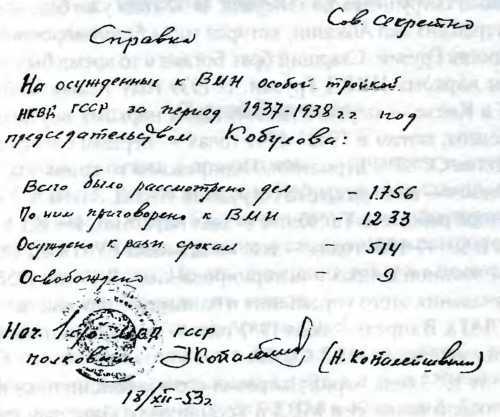 Сов. Секретно
Справка
На осужденных к ВМН Особой тройкой
НКВД ГССР за период 1937-1938 г.г. под
председательством Кобулова:
Всего было рассмотрено дел - 1.756
По ним приговорено к ВМН - 1.233
Осуждено к разн. срокам - 514
Освобождено - 9
Нач. 1 МВД ГССР
полковник
18/XII-53г.